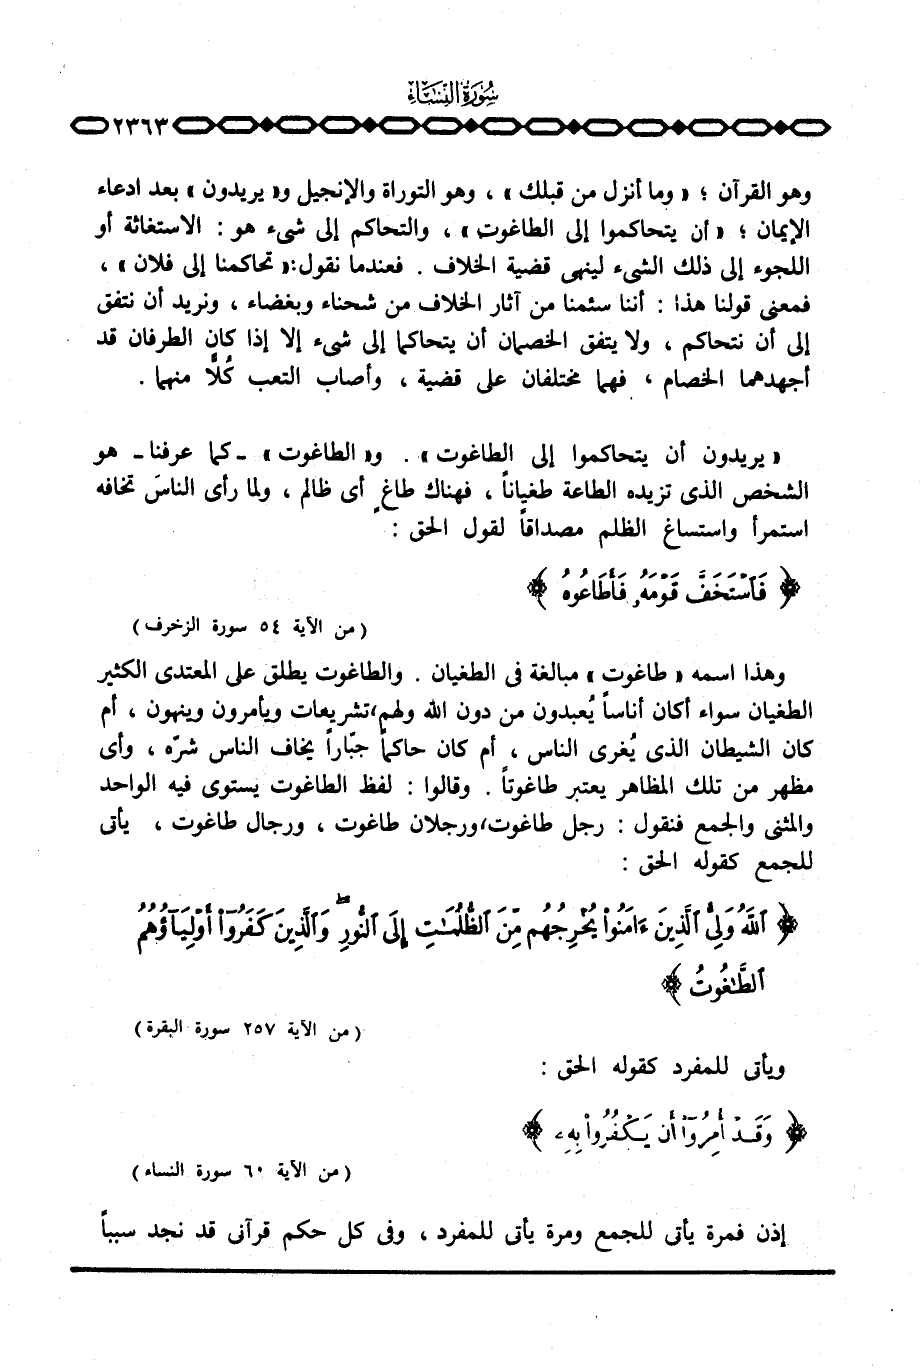 سُورَةُ النِّسَاءِ
٢٣٦٣
وهو القرآن ؛ « وما أنزل من قبلك » ، وهو التوراة والإنجيل و« يريدون » بعد ادعاء
الإيمان ؛ « أن يتحاكموا إلى الطاغوت » ، والتحاكم إلى شىء هو : الاستغاثة أو
اللجوء إلى ذلك الشىء لينهى قضية الخلاف . فعندما نقول:« تحاكمنا إلى فلان » ،
فمعنى قولنا هذا : أننا سئمنا من آثار الخلاف من شحناء وبغضاء ، ونريد أن نتفق
إلى أن نتحاكم ، ولا يتفق الخصمان أن يتحاكما إلى شىء إلا إذا كان الطرفان قد
أجهدهما الخصام ، فهما مختلفان على قضية ، وأصاب التعب كُلًّا منهما .
« يريدون أن يتحاكموا إلى الطاغوت » . و« الطاغوت » ـ كما عرفنا ـ هو
الشخص الذى تزيده الطاعة طغياناً ، فهناك طاغٍ أى ظالم ، ولما رأى الناسَ تخافه
استمرأ واستساغ الظلم مصداقاً لقول الحق :
﴿ فَٱسْتَخَفَّ قَوْمَهُۥ فَأَطَاعُوهُ ﴾
( من الآية ٥٤ سورة الزخرف )
وهذا اسمه « طاغوت » مبالغة فى الطغيان . والطاغوت يطلق على المعتدى الكثير
الطغيان سواء أكان أناساً يُعبدون من دون الله ولهم تشريعات ويأمرون وينهون ، أم
كان الشيطان الذى يُغرى الناس ، أم كان حاكماً جبّاراً يخاف الناس شرّه ، وأى
مظهر من تلك المظاهر يعتبر طاغوتاً . وقالوا : لفظ الطاغوت يستوى فيه الواحد
والمثنى والجمع فنقول : رجل طاغوت، ورجلان طاغوت ، ورجال طاغوت ، يأتى
للجمع كقوله الحق :
﴿ ٱللَّهُ وَلِىُّ ٱلَّذِينَ ءَامَنُوا۟ يُخْرِجُهُم مِّنَ ٱلظُّلُمَـٰتِ إِلَى ٱلنُّورِ ۖ وَٱلَّذِينَ كَفَرُوٓا۟ أَوْلِيَآؤُهُمُ
ٱلطَّـٰغُوتُ ﴾
( من الآية ٢٥٧ سورة البقرة )
ويأتى للمفرد كقوله الحق :
﴿ وَقَدْ أُمِرُوٓا۟ أَن يَكْفُرُوا۟ بِهِۦ ﴾
( من الآية ٦٠ سورة النساء )
إذن فمرة يأتى للجمع ومرة يأتى للمفرد ، وفى كل حكم قرآنى قد نجد سبباً